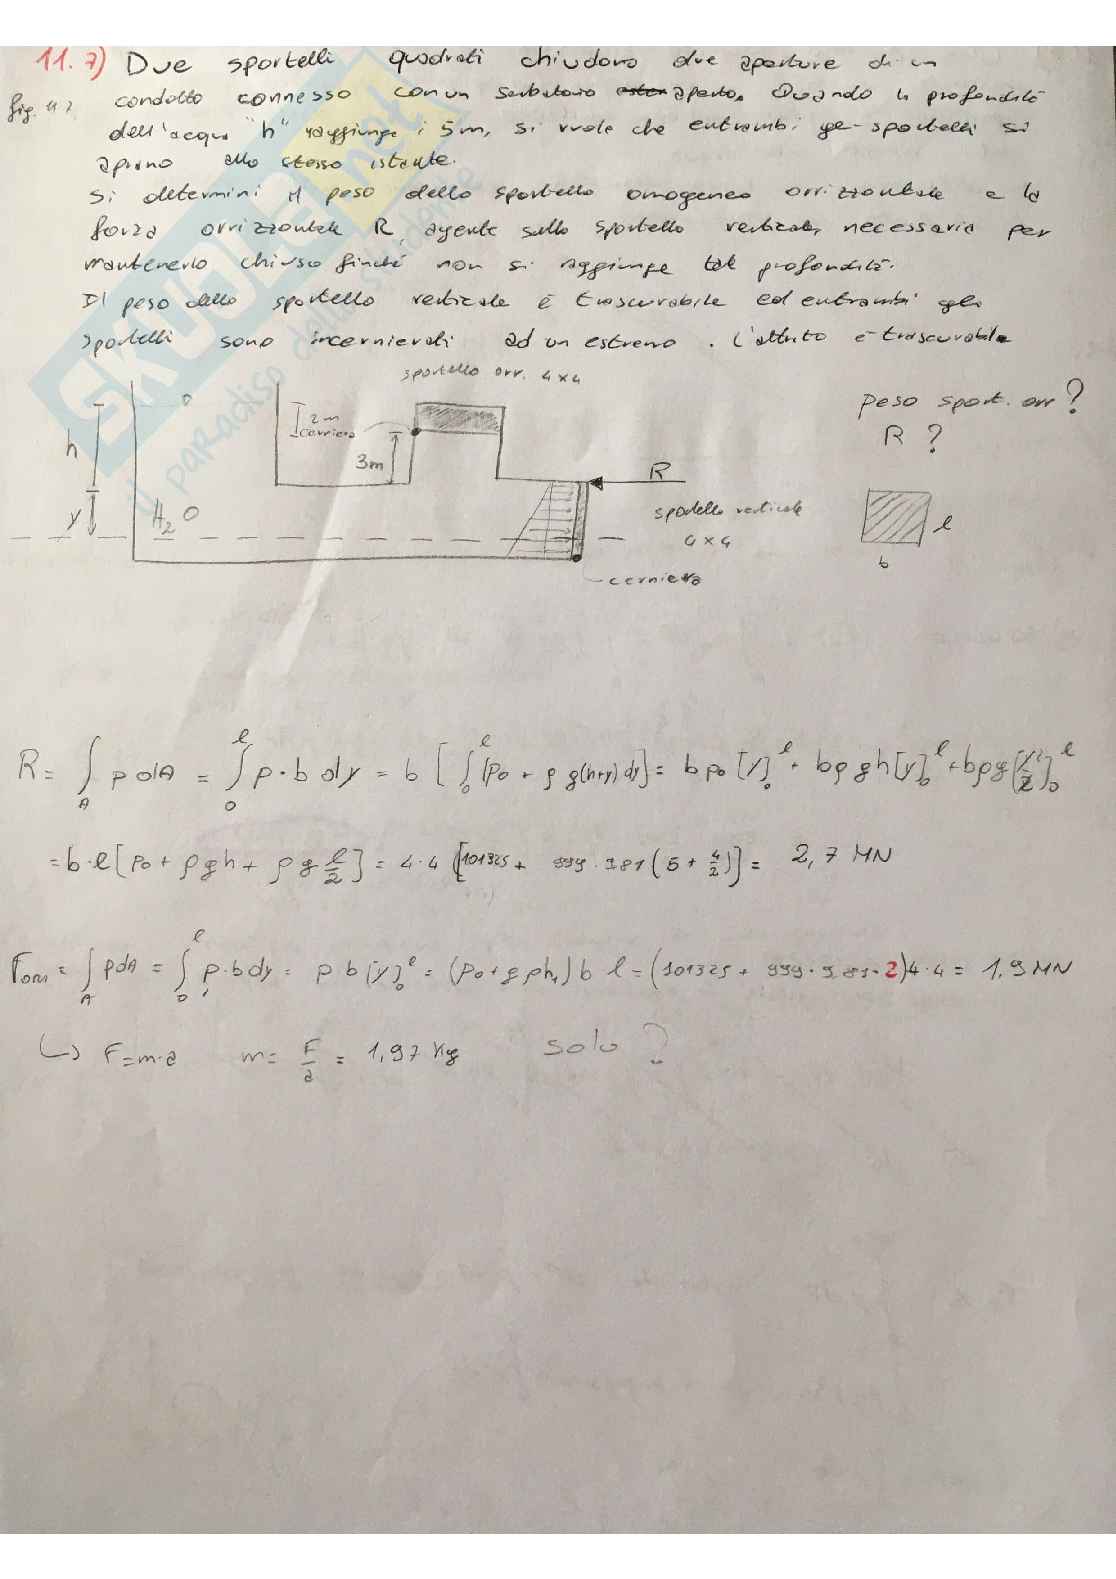 11.7) Due sportelli quadrati chiudono due aperture di un
fig. 11.7 condotto connesso con un serbatoio aperto. Quando la profondità
dell'acqua "h" raggiunge i 5m, si vuole che entrambi gli sportelli si
aprano allo stesso istante.
Si determini il peso dello sportello omogeneo orrizzontale e la
forza orrizzontale R, agente sullo sportello verticale, necessaria per
mantenerlo chiuso finché non si raggiunge tale profondità.
Il peso dello sportello verticale è trascurabile ed entrambi gli
sportelli sono incernierati ad un estremo. L'attrito è trascurabile
sportello orr. 4x4
2m
cerniera
3m
h
y
H2O
R
sportello verticale
4x4
cerniera
peso sport. orr?
R?
l
b
R = ∫A p dA = ∫0^l p·b dy = b [∫0^l (p0 + ρg(h+y) dy] = b p0 [y]0^l + bρgh[y]0^l + bρg[y²/2]0^l
= b·l [p0 + ρgh + ρg l/2] = 4·4 [101325 + 999·9.81(5 + 4/2)] = 2,7 MN
Forr = ∫A p dA = ∫0^l p·b dy = p b [y]0^l = (p0 + gρh1) b l = (101325 + 999·9.81·2)4·4 = 1,9 MN
↳ F=m·a m = F/a = 1,97 Kg solo?
SKUOLA.net
il paradiso dello studente